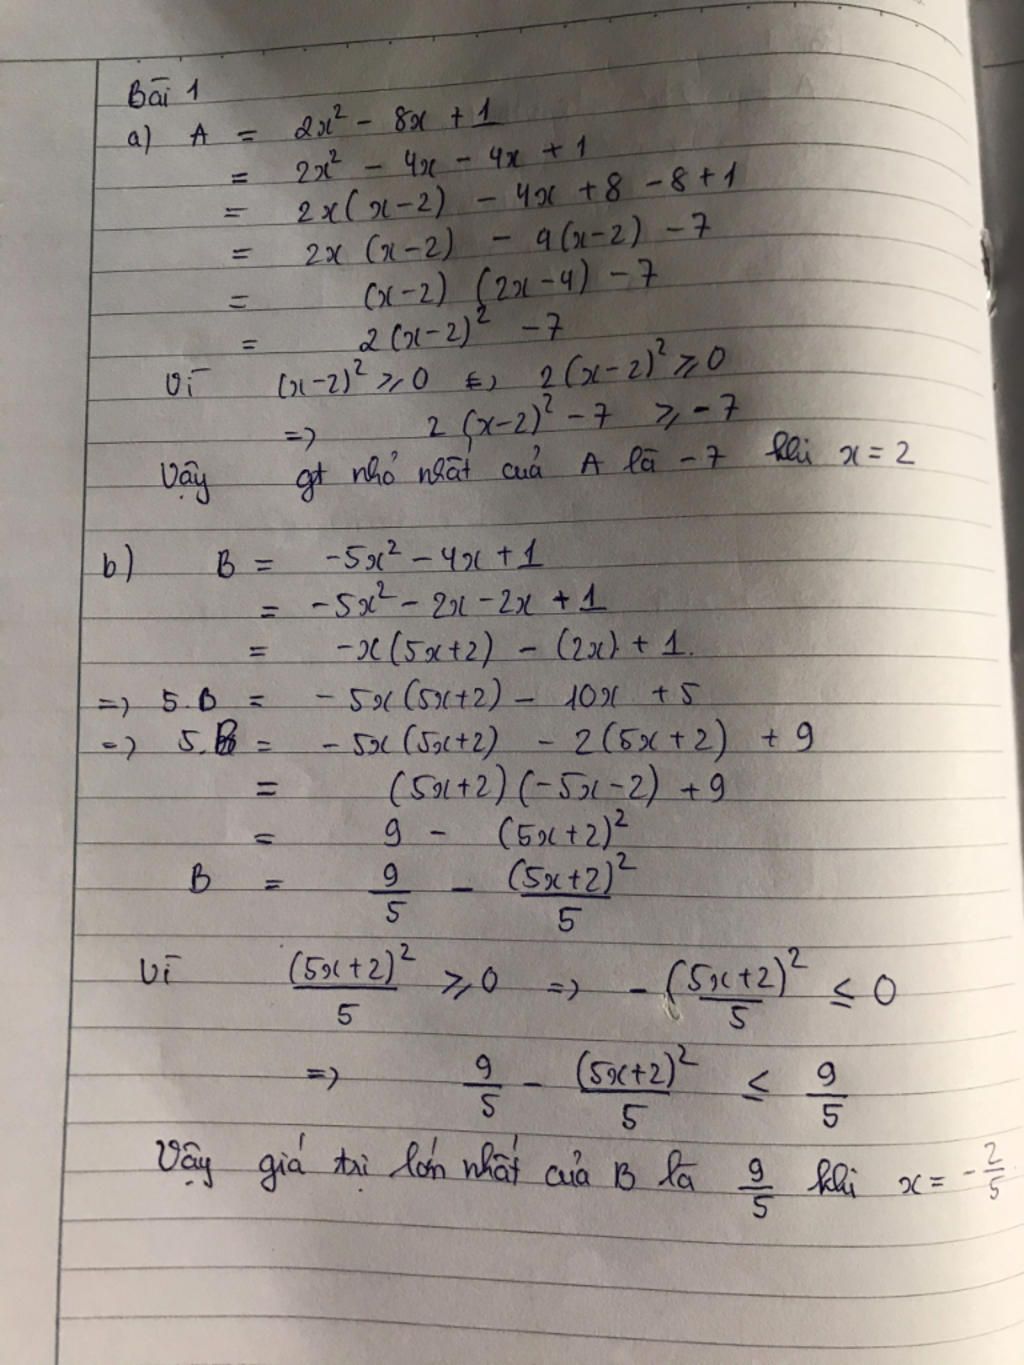 Bài 1
a) A = 2x² - 8x + 1
= 2x² - 4x - 4x + 1
= 2x(x-2) - 4x + 8 - 8 + 1
= 2x (x-2) - 4(x-2) - 7
= (x-2) (2x-4) - 7
= 2(x-2)² - 7
Vì (x-2)² ≥ 0 <=> 2(x-2)² ≥ 0
=> 2(x-2)² - 7 ≥ -7
Vậy gt nhỏ nhất của A là -7 khi x = 2
b) B = -5x² - 4x + 1
= -5x² - 2x - 2x + 1
= -x(5x+2) - (2x) + 1.
=> 5.B = -5x(5x+2) - 10x + 5
=> 5.B = -5x(5x+2) - 2(5x+2) + 9
= (5x+2)(-5x-2) + 9
= 9 - (5x+2)²
B = 9/5 - (5x+2)²/5
Vì (5x+2)²/5 ≥ 0 => -(5x+2)²/5 ≤ 0
=> 9/5 - (5x+2)²/5 ≤ 9/5
Vậy giá trị lớn nhất của B là 9/5 khi x = -2/5.